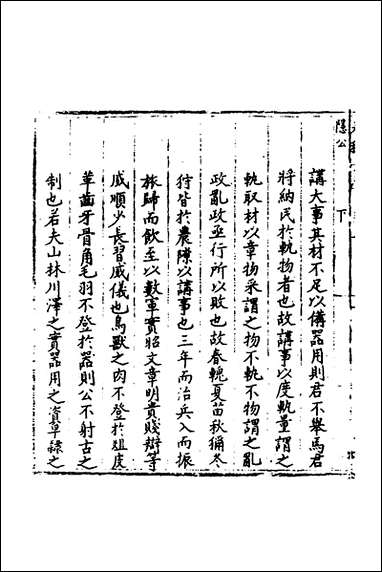 隱公 下
講大事其材不足以備器用則君不舉焉君
將納民於軌物者也故講事以度軌量謂之
軌取材以章物采謂之物不軌不物謂之亂
政亂政亟行所以敗也故春夏苗秋獮冬
狩皆於農隙以講事也三年而治兵入而振
旅歸而飲至以數軍實昭文章明貴賤辯等
威順少長習威儀也鳥獸之肉不登於俎皮
革齒牙骨角毛羽不登於器則公不射古之
制也若夫山林川澤之實器用之資皁隸之